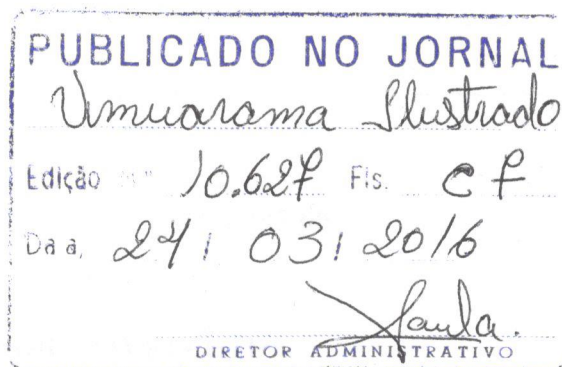 PUBLICADO NO JORNAL
Umuarama Ilustrado
Edição nº 10.627 Fls. C7
Data, 24 / 03 / 2016
Paula.
DIRETOR ADMINISTRATIVO